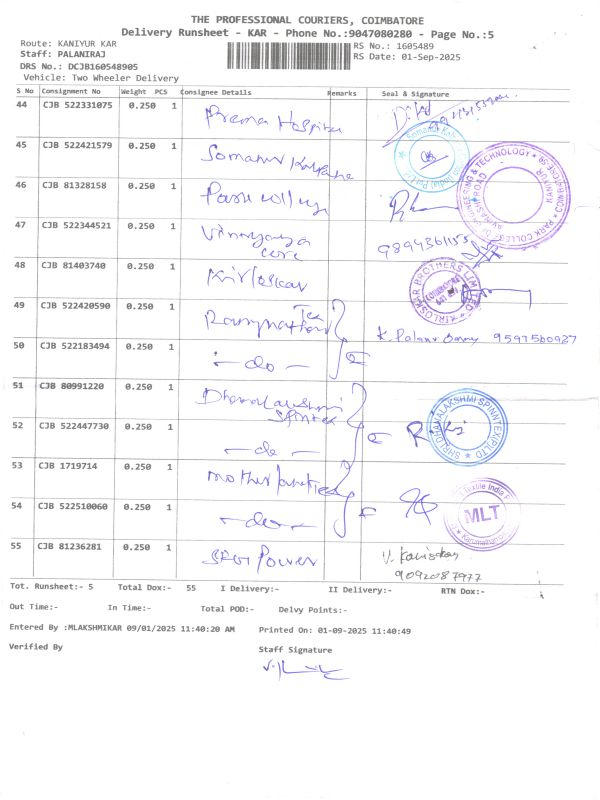 THE PROFESSIONAL COURIERS, COIMBATORE
Delivery Runsheet - KAR - Phone No.:9047080280 - Page No.:5
Route: KANIYUR KAR
RS No.: 1605489
Staff: PALANIRAJ
RS Date: 01-Sep-2025
DRS No.: DCJB160548905
Vehicle: Two Wheeler Delivery
S No Consignment No Weight PCS Consignee Details Remarks Seal & Signature
44 CJB 522331075 0.250 1 Prema Hospital
45 CJB 522421579 0.250 1 Somanur
46 CJB 81328158 0.250 1 Park college
PARK COLLEGE OF ENGINEERING & TECHNOLOGY
KANIYUR
47 CJB 522344521 0.250 1 Vinayaga
48 CJB 81403740 0.250 1 Kirloskar
KIRLOSKAR BROTHERS LIMITED
49 CJB 522420590 0.250 1 Tex
50 CJB 522183494 0.250 1 - do -
9597560927
51 CJB 80991220 0.250 1 Dhanalakshmi
52 CJB 522447730 0.250 1 - do -
SHRI DHANALAKSHMI SPINNTEX(P)LTD
53 CJB 1719714 0.250 1
54 CJB 522510060 0.250 1 - do -
MLT
55 CJB 81236281 0.250 1 Power
9092087977
Tot. Runsheet:- 5 Total Dox:- 55 I Delivery:- II Delivery:- RTN Dox:-
Out Time:- In Time:- Total POD:- Delvy Points:-
Entered By :MLAKSHMIKAR 09/01/2025 11:40:20 AM Printed On: 01-09-2025 11:40:49
Verified By Staff Signature